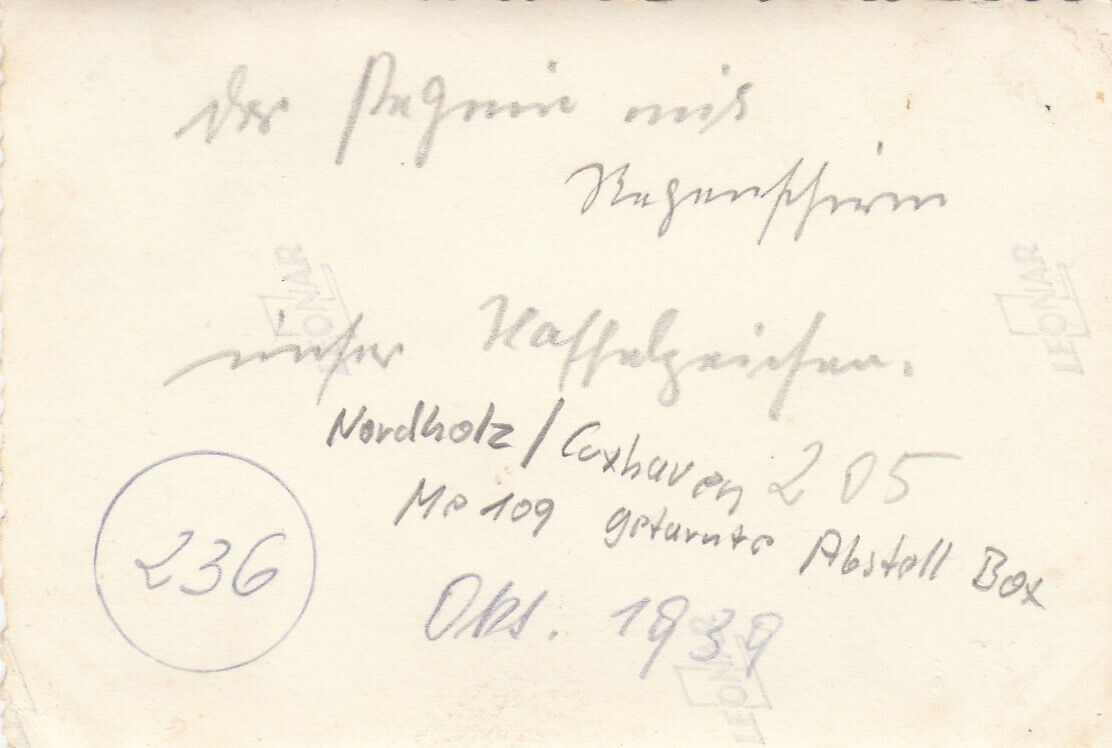 Der mit
Regenschirm
unser Staffelzeichen.
Nordholz / Cuxhaven 205
Me 109 getarnte Abstell Box
236
Okt. 1939
LEONAR
LEONAR
LEONAR